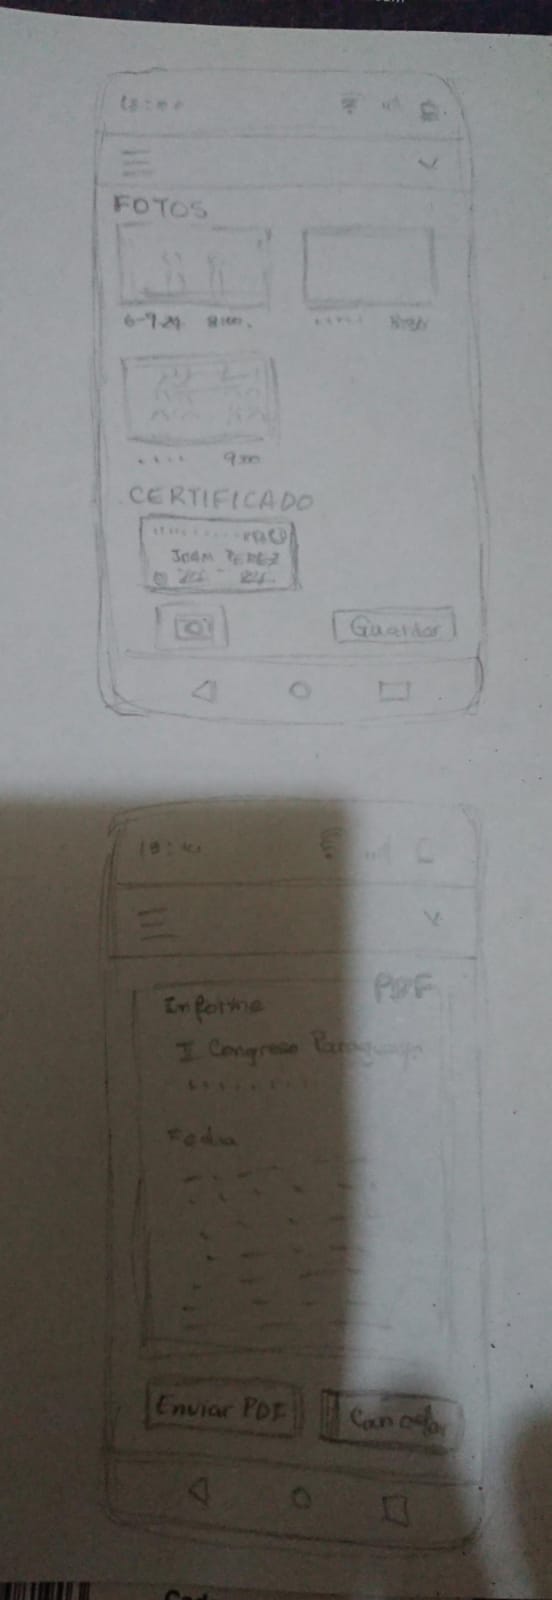 FOTOS
6-9-24 8:00.
8:30
9:00
CERTIFICADO
JUAN PEREZ
Guardar
18:
PDF
Informe
II Congreso Paraguayo
Fecha
Enviar PDF
Cancelar